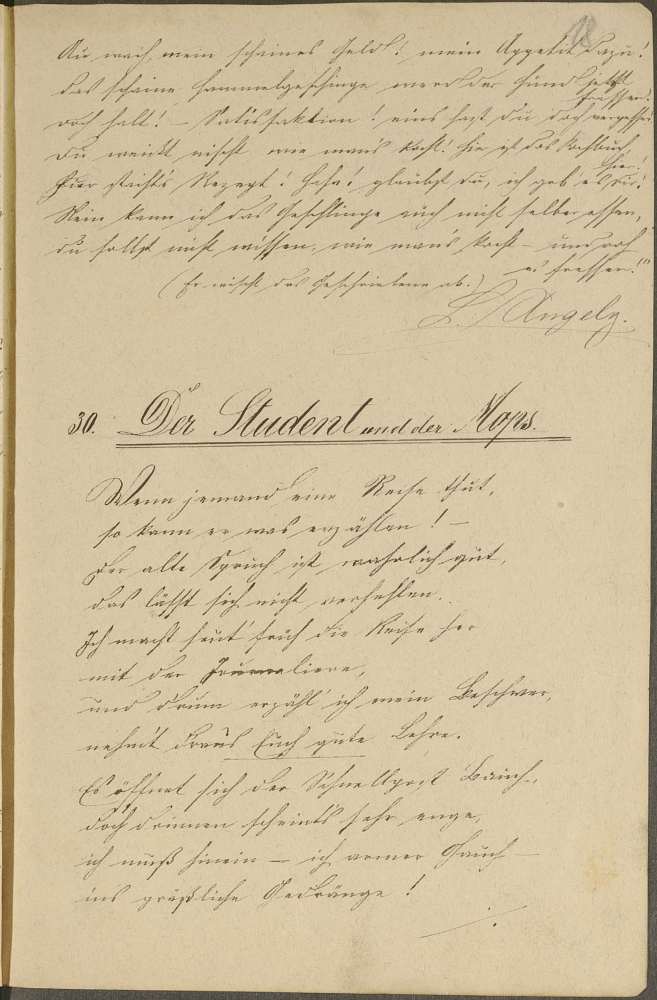 Au weih, mein scheines Geld! mein Appetit dazu!
das scheine Hammelgeschlinge werd der Hund jetzt
fressen!
doch halt! – Satisfaktion! eins hast du doch vergessen
Du weißt nischt wie man's kocht! hie ist das Kochbuch,
hier!
hier steht's Rezept! Haha! glaubst du, ich geb' es dir!
Nein kann ich das Geschlinge auch nicht selber essen,
du sollst nicht wissen, wie man's kocht – und roh
es fressen!"
(Er wischt das Geschriebene ab.)
L. Angely.
30. Der Student und der Mops.
Wenn jemand eine Reise thut,
so kann er was erzählen! –
Der alte Spruch ist wahrlich gut,
das lässt sich nicht verhehlen.
Ich macht heut' früh die Reise her
mit der Journaliere,
und drum erzähl' ich mein Beschwer,
nehmt draus Euch gute Lehre.
Es öffnet sich der Schnellpost Bauch,
doch drinnen scheint's sehr enge,
ich muß hinein – ich armer Gauch –
ins gräßliche Gedränge!